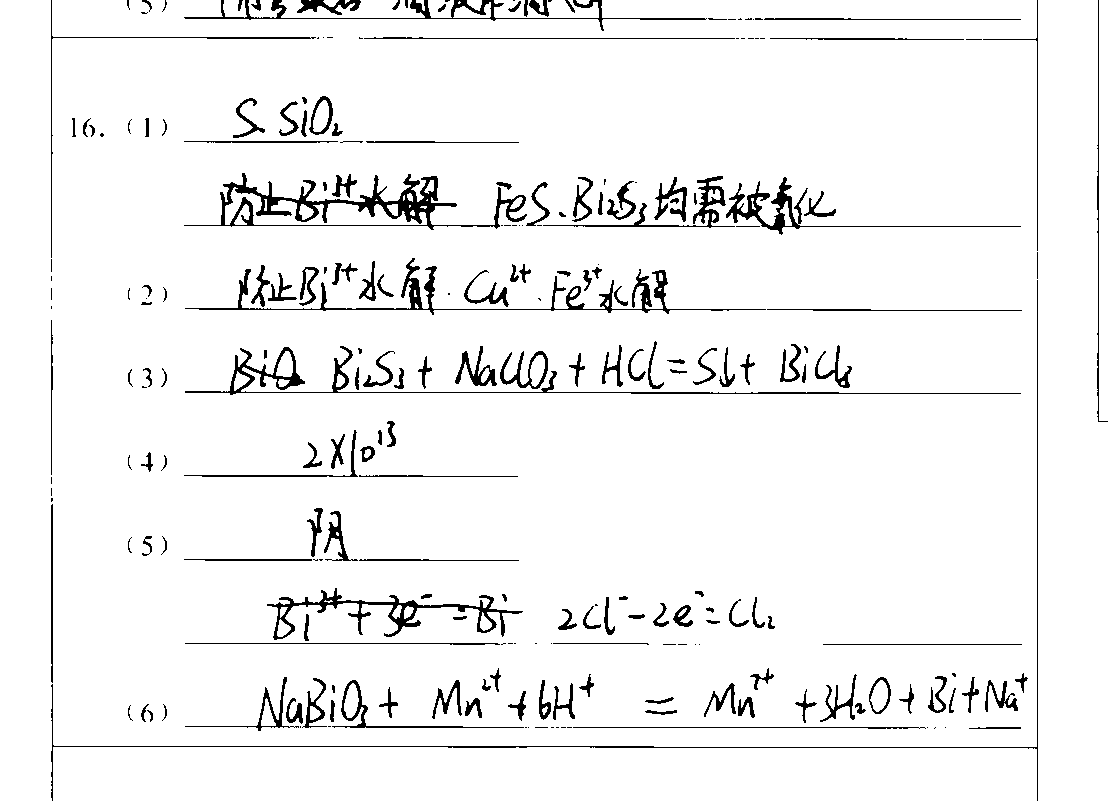 (5) 防止最后一滴液体滴入
16. (1) S、SiO₂
防止Bi³⁺水解 FeS、Bi₂S₃均需被氧化
(2) 防止Bi³⁺水解、Cu²⁺、Fe³⁺水解
(3) BiO Bi₂S₃ + NaClO₃ + HCl = S↓ + BiCl₃
(4) 2×10¹³
(5) 阴
Bi³⁺ + 3e⁻ = Bi 2Cl⁻ - 2e⁻ = Cl₂
(6) NaBiO₃ + Mn²⁺ + 6H⁺ = Mn⁷⁺ + 3H₂O + Bi + Na⁺